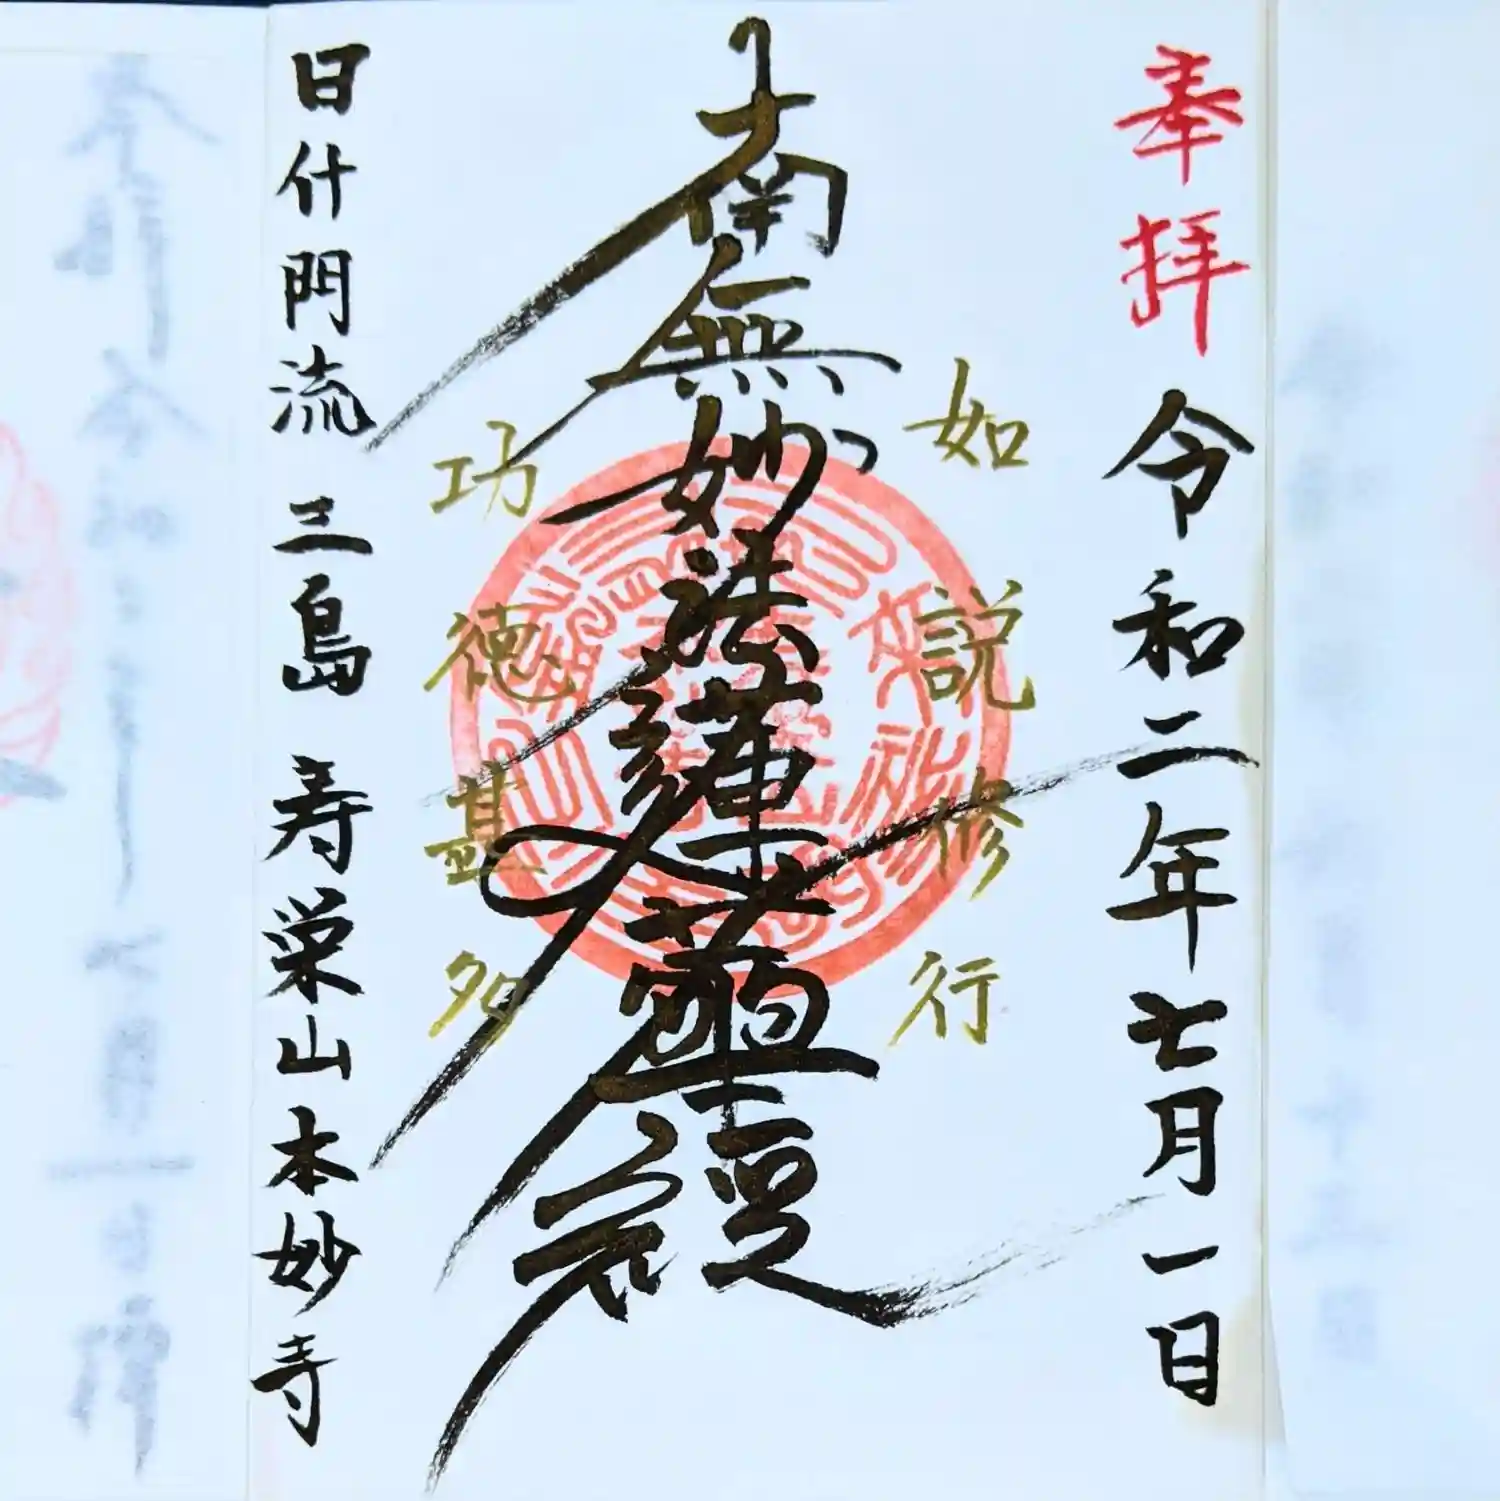 奉拝 令和二年七月一日
如説修行
南無妙法蓮華経
功徳甚多
日什門流 三島 寿栄山本妙寺